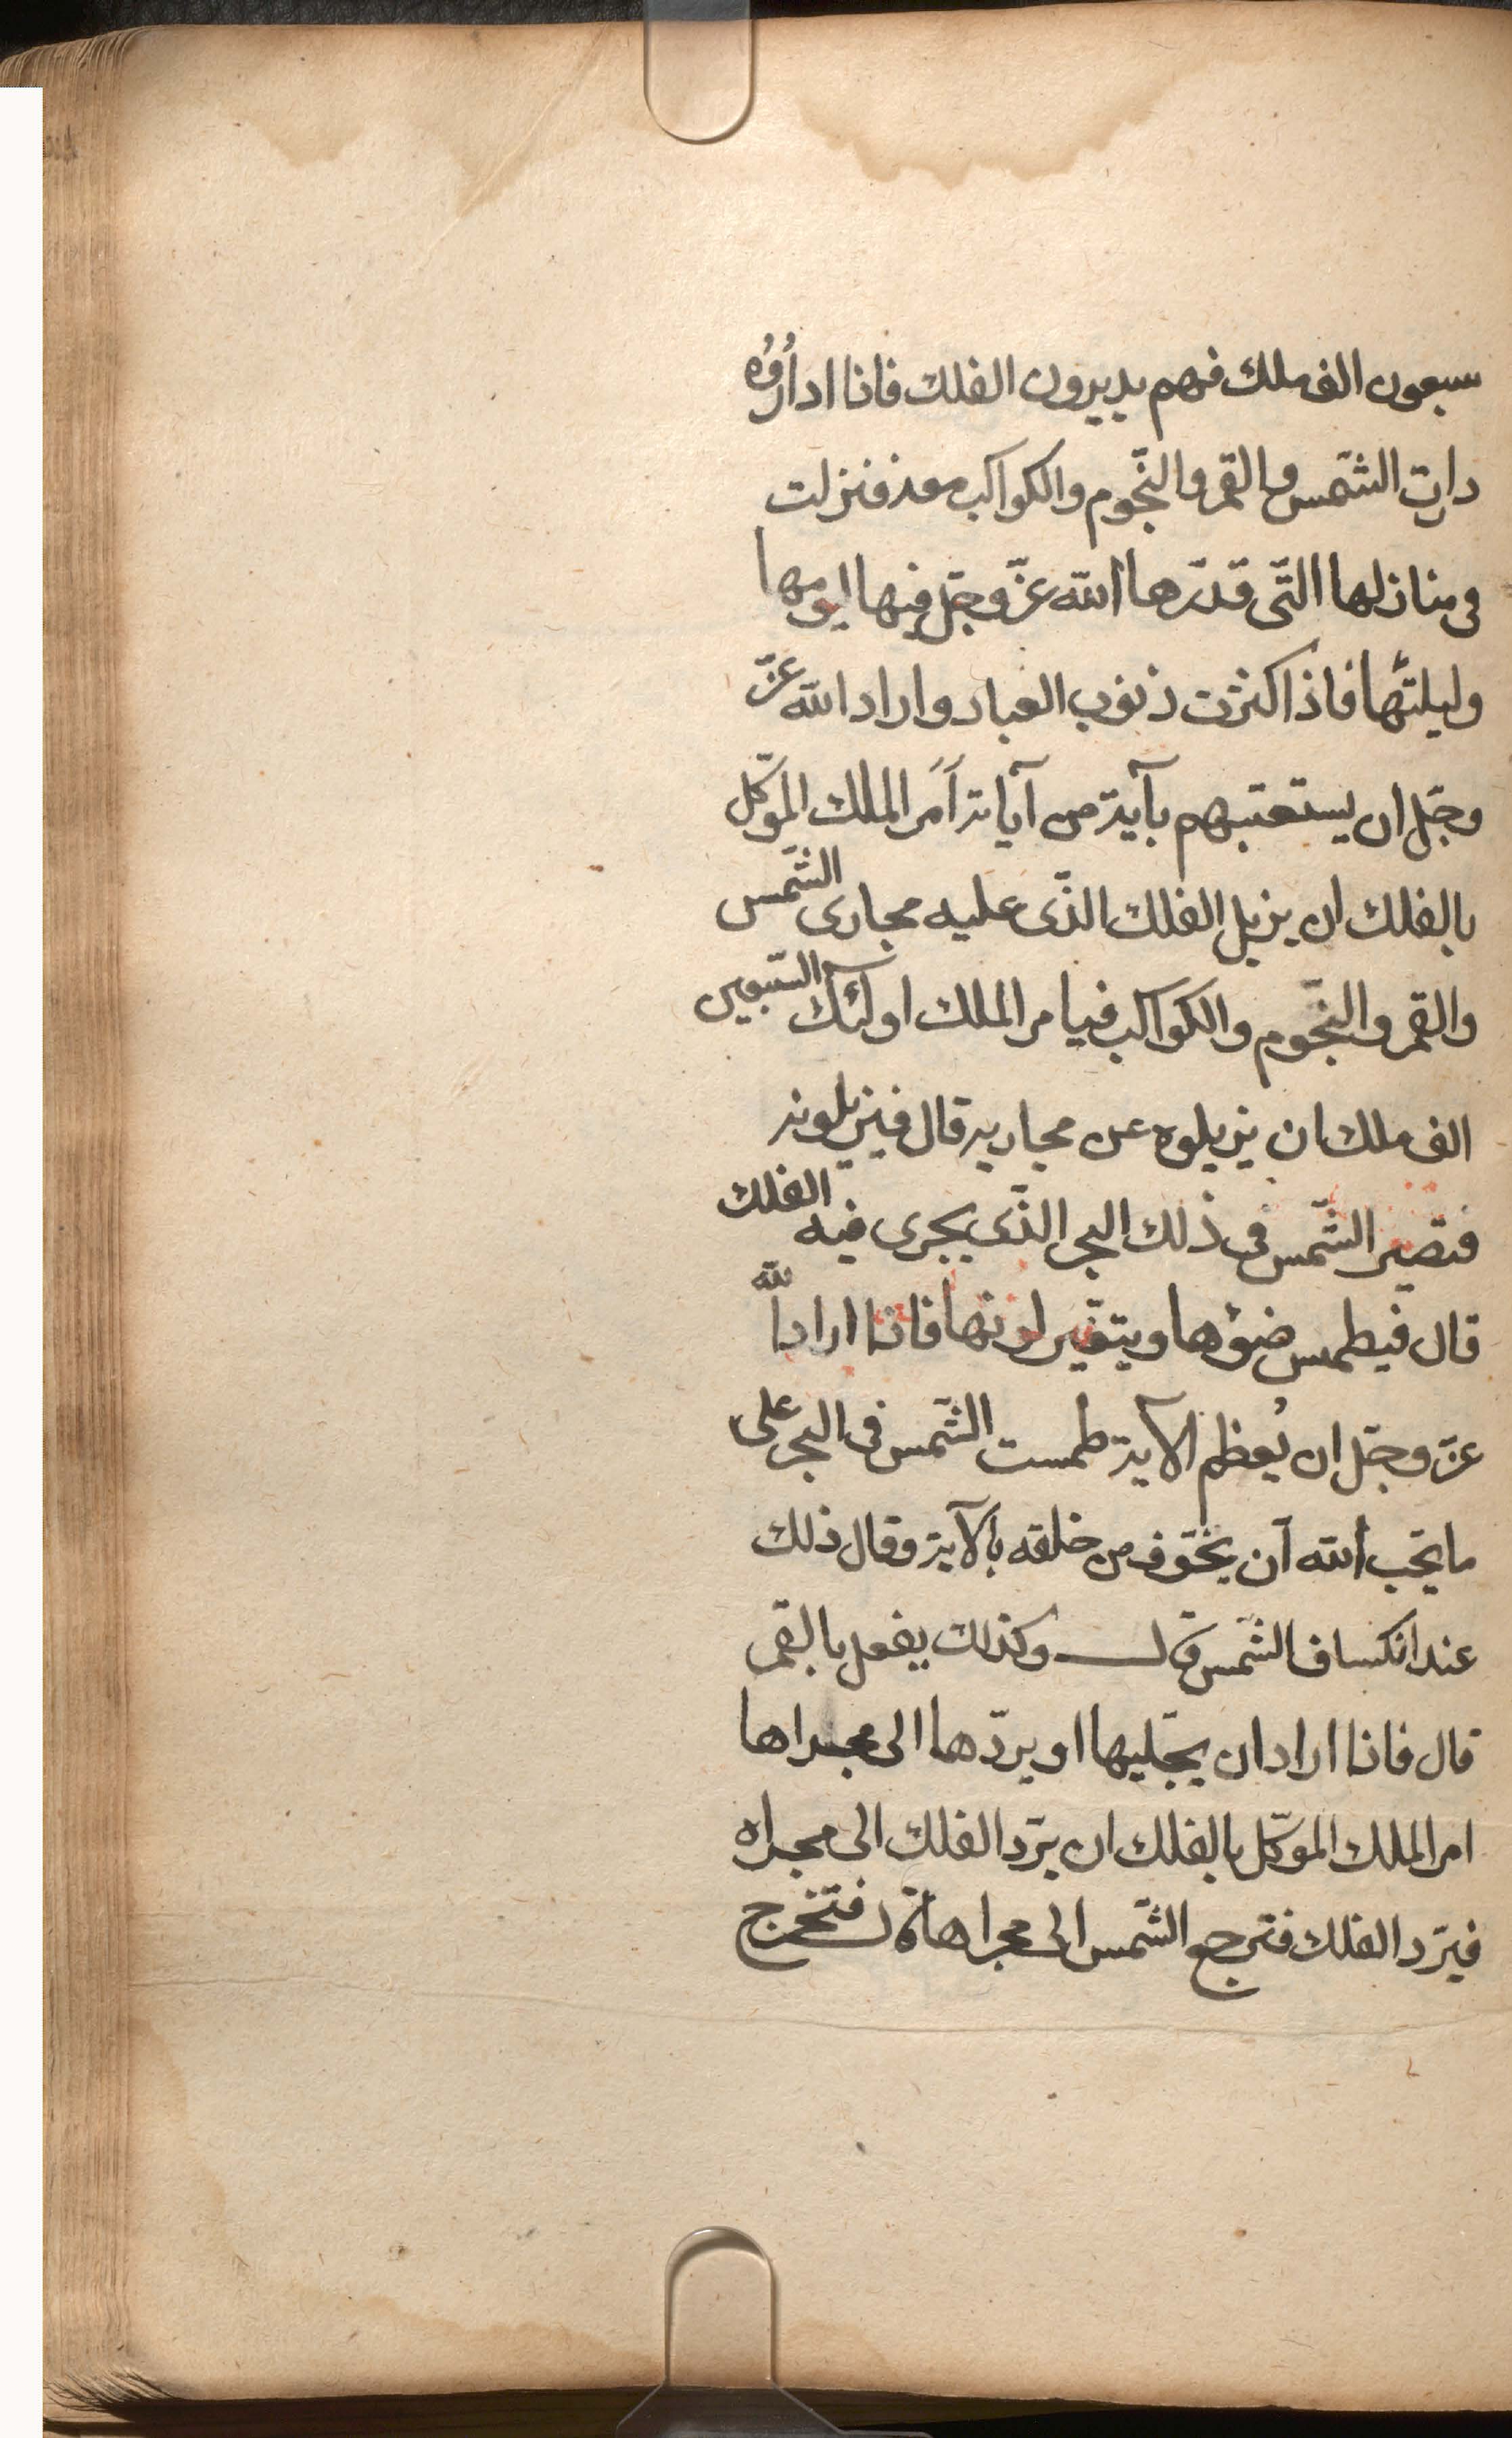 سبعون الف ملك فهم يديرون الفلك فاذا ادارُوُه
دارت الشّمس والقمر والنّجوم والكواكب معه فنزلت
فى منازلها التّى قدّرها الله عزّ وجّل فيها ليومها
وليلتها فاذا كثرت ذنوب العباد واراد الله عزّ
وجّل ان يستعتبهم بآية من آياته اَمَر الملك الموّكل
بالفلك ان يزيل الفلك الذّى عليه مجارى الشّمس
والقمر والنّجوم والكواكب فيامر الملك اولئك السّبعين
الف ملك ان يزيلوه عن مجاريه قال فيزيلونه
فتصير الشّمس فى ذلك البحر الذّى يجرى فيه الفلك
قال فيطمس ضوؤها ويتغّير لونها فاذا اراد الله
عزّ وجّل ان يُعظم الآية طمست الشّمس فى البحر على
ما يحّب الله آن يخّوف من خلقه بالآية وقال ذلك
عند انكساف الشّمس قال وكذلك يفعل بالقمر
قال فاذا اراد ان يجّليها او يردّها الى مجراها
امر الملك الموّكل بالفلك ان يرّد الفلك الى مجراه
فيرّد الفلك فترجع الشّمس الى مجراها قال فتخرج